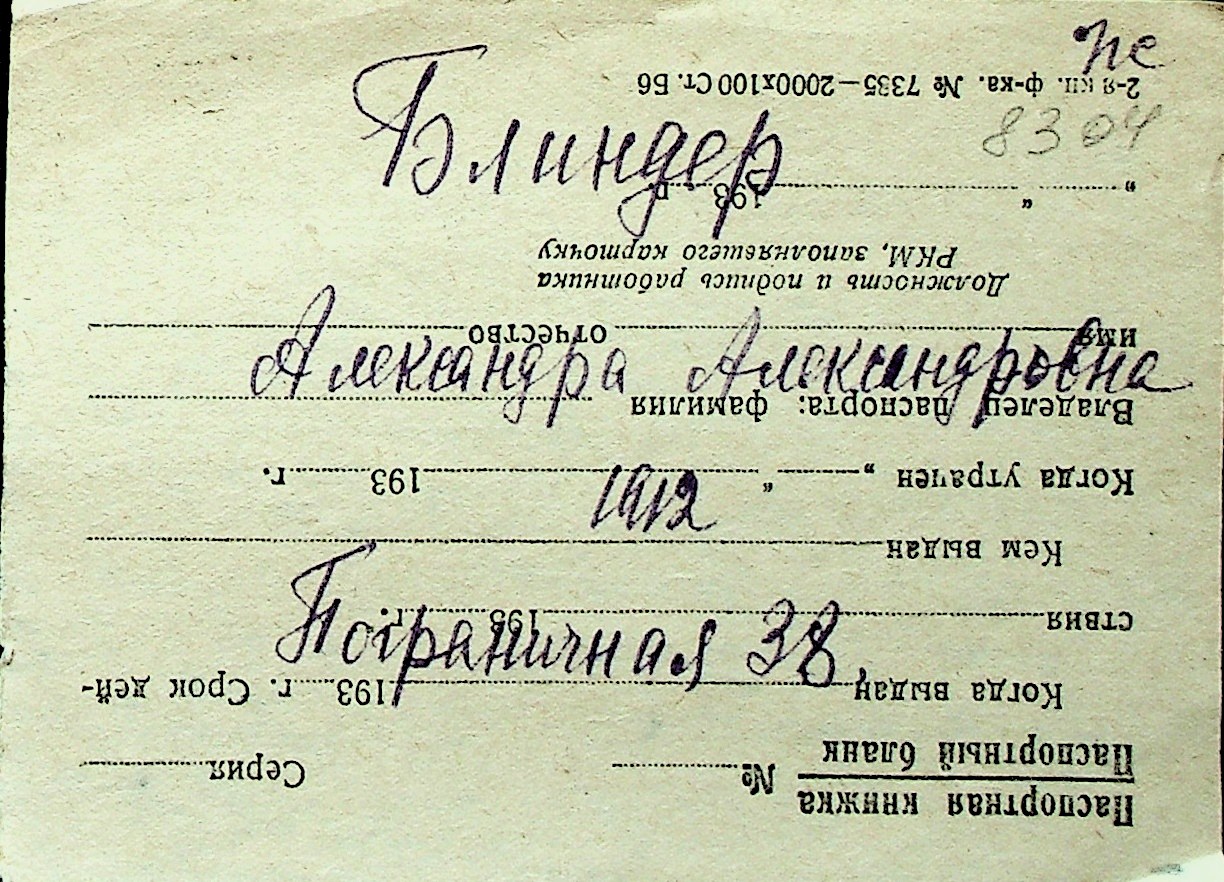 пе
8304
Блиндер
Александра Александровна
1912
Пограничная 38,
Паспортная книжка
Паспортный бланк
№ Серия
Когда выдан 193 г. Срок дей-
ствия 193 г.
Кем выдан
Когда утрачен „ “ 193 г.
Владелец паспорта: фамилия
имя отчество
Должность и подпись работника
РКМ, заполнявшего карточку
„ “ 193 г.
2-я кп. ф-ка. № 7335—2000х100 Ст. Б6